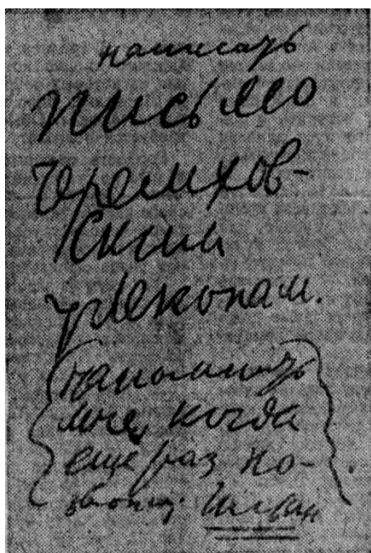 написать
письмо
черемхов-
ским
углекопам.
(напомнить
мне, когда
еще раз по-
звонит.